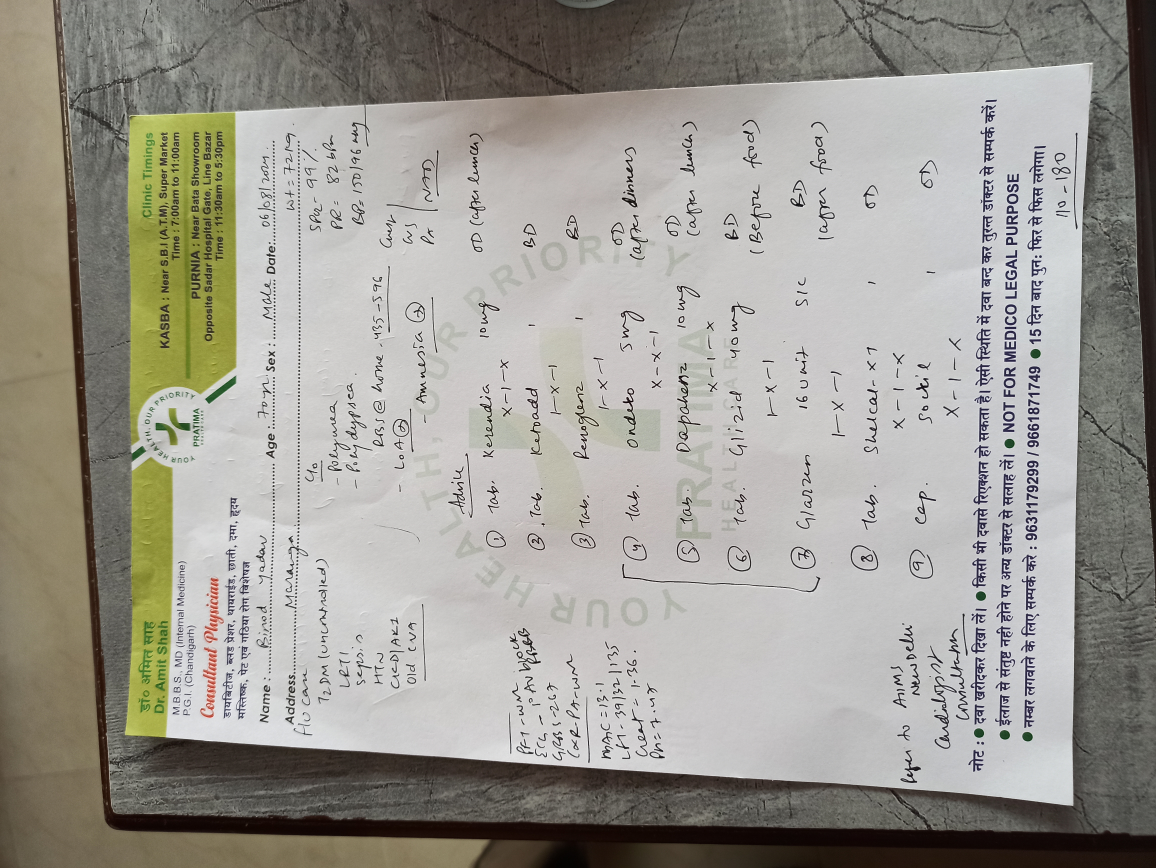 डॉ० अमित साह
Dr. Amit Shah
M.B.B.S., MD (Internal Medicine)
P.G.I. (Chandigarh)
Consultant Physician
डायबिटीज, ब्लड प्रेशर, थायराईड, छाती, दमा, हृदय
मस्तिष्क, पेट एवं गठिया रोग विशेषज्ञ
YOUR HEALTH, OUR PRIORITY
PRATIMA
Clinic Timings
KASBA : Near S.B.I (A.T.M), Super Market
Time : 7:00am to 11:00am
PURNIA : Near Bata Showroom
Opposite Sadar Hospital Gate, Line Bazar
Time : 11:30am to 5:30pm
Name : Binod Yadav Age : 70yr Sex : Male Date: 06/08/2024
Address Maranga wt = 72 kg
T2DM (uncontrolled)
LRTI
Sepsis
HTN
CKD/AKI
Old CVA
C/o
- Polyuria
- Polydypsea
RBS @ home - 435-596
- LOA (+)
- Amnesia (+)
SPO2 - 99%
PR = 82 bpm
BP = 150/96 mmHg
P/A NAD
Advice
① Tab. Kerendia 10mg OD (after lunch)
x-1-x
② Tab. Ketoadd 1 BD
1-x-1
③ Tab. Renoglenz 1 BD
1-x-1
④ Tab. Ondeto 5mg OD (after dinner)
x-x-1
⑤ Tab. Dapahenz 10mg OD (after lunch)
x-1-x
⑥ Tab. Glizid 40mg BD (Before food)
1-x-1
⑦ Glarzen 16 unit S/C BD (after food)
1-x-1
⑧ Tab. Shelcal-XT 1 OD
x-1-x
⑨ Cap. 1 OD
x-1-x
ECG - 1° AV Block
GRBS - 267
CXR PA - WNL
HbA1C = 13.1
LFT - 39/32/135
Creat = 1.36
Refer to AIIMS New Delhi
Cardiologist Consultation
110-180
YOUR HEALTH, OUR PRIORITY
PRATIMA
HEALTHCARE
नोट : ● दवा खरीदकर दिखा लें। ● किसी भी दवासे रिएक्शन हो सकता है। ऐसी स्थिति में दवा बन्द कर तुरन्त डॉक्टर से सम्पर्क करें।
● ईलाज से संतुष्ट नही होने पर अन्य डॉक्टर से सलाह लें। ● NOT FOR MEDICO LEGAL PURPOSE
● नम्बर लगवाने के लिए सम्पर्क करें : 9631179299 / 9661871749 ● 15 दिन बाद पुन: फिर से फिस लगेगा।